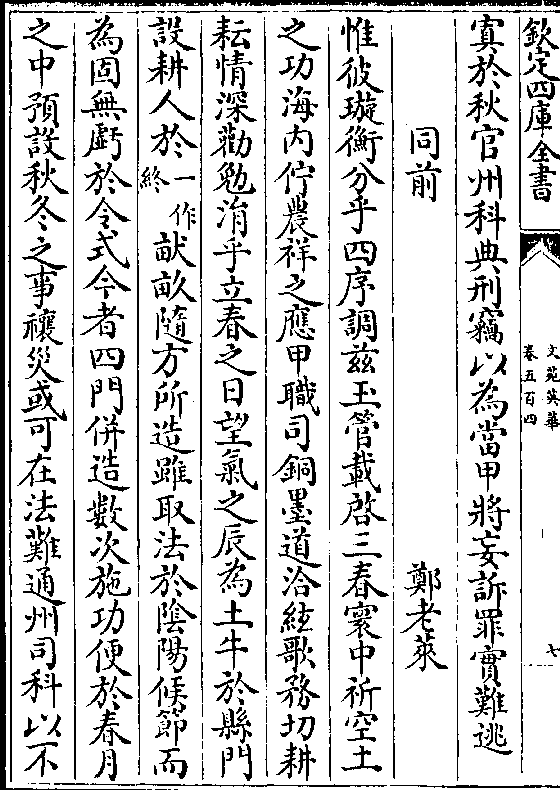 欽定四庫全書
文苑英華
卷五百四
七
寘於秋官州科典刑竊以為當甲將妄訴罪實難逃
同前
鄭老萊
惟彼璇衡分乎四序調兹玉管載啓三春寰中祈空土
之功海内佇農祥之應甲職司銅墨道洽絃歌務切耕
耘情深勸勉洎乎立春之日望氣之辰為土牛於縣門
設耕人於一作終献畝隨方所造雖取法於陰陽候節而
為固無虧於令式今者四門併造數次施功便於春月
之中預設秋冬之事禳災或可在法難通州司科以不